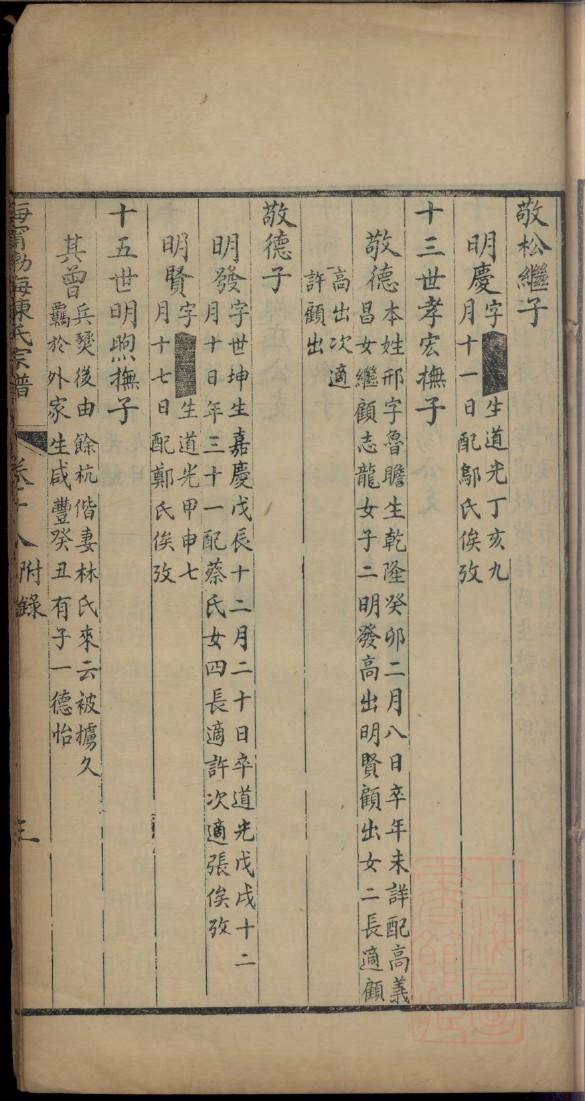 敬松繼子
明慶
字　生道光丁亥九
月十一日配鄔氏俟攷
十三世孝宏撫子
敬德
本姓邢字魯瞻生乾隆癸卯二月八日卒年未詳配高義
昌女繼顧志龍女子二明發高出明賢顧出女二長適顧
高出次適
許顧出
敬德子
明發
字世坤生嘉慶戊辰十二月二十日卒道光戊戌十二
月十日年三十一配蔡氏女四長適許次適張俟攷
明賢
字　生道光甲申七
月十七日配鄭氏俟攷
十五世明煦撫子
其曾
兵燹後由餘杭偕妻林氏來云被擄久
羈於外家生咸豐癸丑有子一德怡
海寧渤海陳氏宗譜
卷十八附錄
三
上海圖書館藏